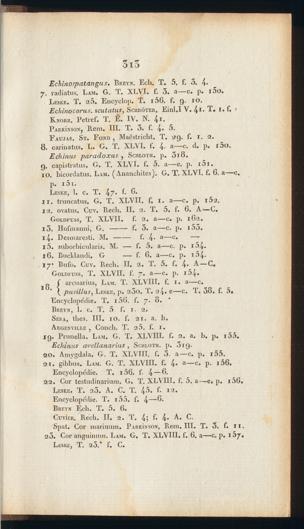 313
Echinospatangus. BREYN. Ech. T. 5. f. 3. 4.
7. radiatus, LAM. G. T. XLVI. f. 3. a—c. p. 150.
LESKE. T. 25. Encyclop. T. 156. f. 9. 10.
Echinocorus. scutatur, SCHRÖTER, Einl. IV. 41. T. 1. f.
KNORR, Petref. T. E. IV. N. 41.
PARKINSON, Rem. III. T. 3. f. 4. 5.
FAUJAS, ST. FOND, Maëstricht. T. 29. f. 1. 2.
8. carinatus, L. G. T. XLVI. f. 4. a—c. d. p. 150.
Echinus paradoxus, SCHLOTH. p. 318.
9. capistratus, G. T. XLVI. f. 5. a—c. p. 151.
10. bicordatus, LAM. (Ananchites). G. T. XLVI. f. 6. a—c.
p. 151.
LESKE, l. c. T. 47. f. 6.
11. truncatus, G. T. XLVII. f. 1. a—c. p. 152.
12. ovatus, CUV. Rech. II. 2. T. 5. f. 6. A—C.
GOLDFUSS, T. XLVII. f. 2. a—c. p. 162.
13. Hofmanni, G. —— f. 3. a—c. p. 153.
14. Desmaresti. M. —— f. 4. a—c. —
15. suborbicularis. M. — f. 5. a—c. p. 154.
16. Bucklandi, G — f. 6. a—c. p. 154.
17. Bufis, CUV. Rech. II. 2. T. 5. f. 4. A—C.
GOLDFUSS, T. XLVII. f. 7. a—c. p. 154.
18. { arcuarius, LAM. T. XLVIII. f. 1. a—c.
{ pusillus, LESKE, p. 230. T. 24. c—e. T. 38. f. 5.
Encyclopédie. T. 156. f. 7. 8.
BREYN, l. c. T. 5 f. 1. 2.
SEBA, thes. III. 10. f. 21. a. b.
ARGENVILLE, Conch. T. 25. f. 1.
19. Prunella. LAM. G. T. XLVIII. f. 2. a. b. p. 155.
Echinus avellanarius, SCHLOTH. p. 319.
20. Amygdala, G. T. XLVIII. f. 3. a—c. p. 155.
21. gibbus, LAM. G. T. XLVIII. f. 4. a—c. p. 156.
Encyclopédie. T. 156. f. 4—6.
22. Cor testudinarium. G. T. XLVIII. f. 5. a—c. p. 156.
LESKE. T. 23. A. C. T. 45. f. 12.
Encyclopédie. T. 155. f. 4—6.
BREYN Ech. T. 5. 6.
CUVIER, Rech. II. 2. T. 4; f. 4. A. C.
Spat. Cor marinum. PARKINSON, Rem. III. T. 3. f. 11.
23. Cor anguinum. LAM. G. T. XLVIII. f. 6. a—c. p. 157.
LESKE, T. 23.* f. C.